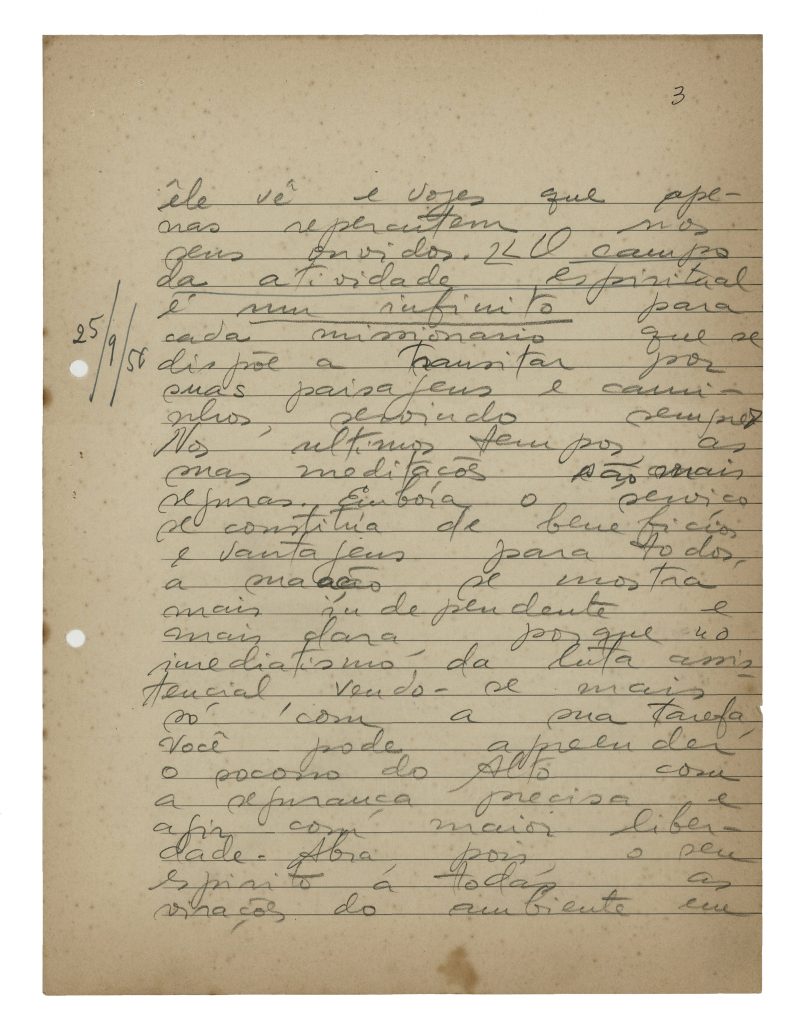 3
êle vê e vozes que ape-
nas repercutem nos
seus ouvidos. O campo
da atividade espiritual
é um infinito para
25/9/56
cada missionario que se
dispõe a transitar por
suas paisagens e cami-
nhos, servindo sempre
Nos ultimos tempos as
suas meditações são mais
seguras. Embóra o serviço
se constitúa de beneficios
e vantagens para todos,
a se mostra
mais independente e
mais clara porque no
imediatismo da luta assis-
tencial vendo-se mais
só com a sua tarefa
Você pode apreender
o socorro do Alto com
a segurança precisa e
agir com maior liber-
dade. Abra pois o seu
espirito á todas as
virações do ambiente em